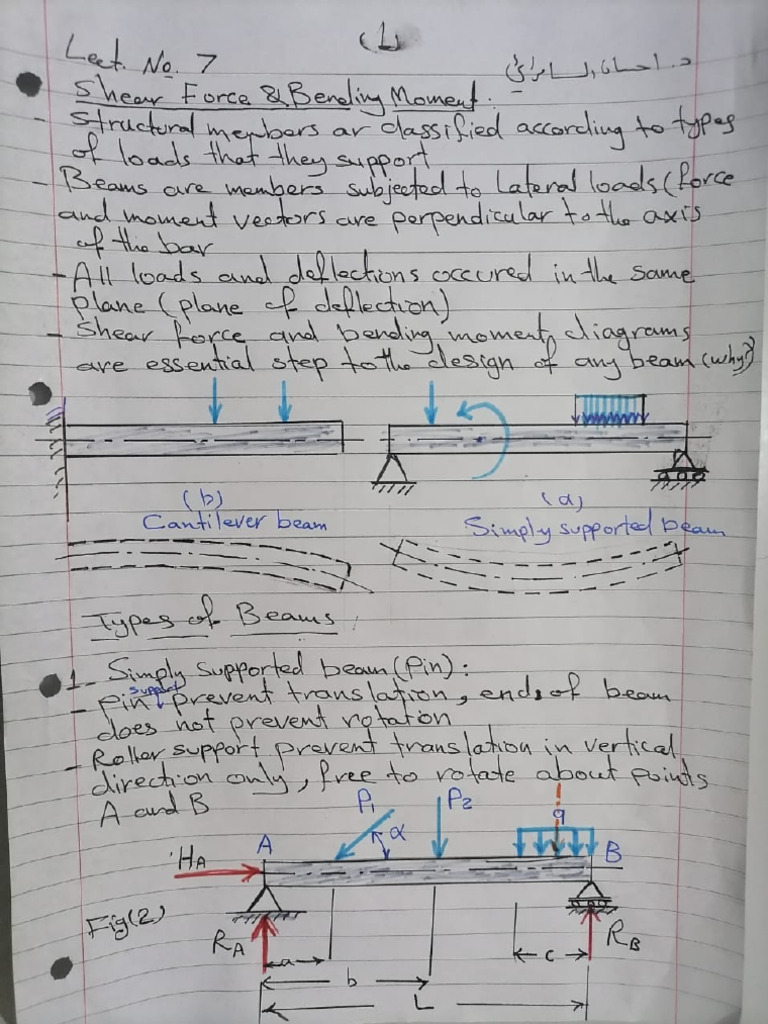 (1)
Lect. No. 7
د. احسان السامرائي
Shear Force & Bending Moment.
- Structural members ar classified according to types
of loads that they support
- Beams are members subjected to Lateral loads (force
and moment vectors are perpendicular to the axis
of the bar
- All loads and deflections occured in the same
plane (plane of deflection)
- Shear force and bending moment diagrams
are essential step to the design of any beam (why?)
(b)
Cantilever beam
(a)
Simply supported beam
Types of Beams:
1- Simply supported beam (Pin):
- Pin support prevent translation, ends of beam
does not prevent rotation
- Roller support prevent translation in vertical
direction only, free to rotate about points
A and B
P1 α P2 q
HA A B
Fig(2)
RA RB
a c
b
L